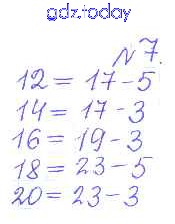 gdz.today
№ 7.
12 = 17 - 5
14 = 17 - 3
16 = 19 - 3
18 = 23 - 5
20 = 23 - 3